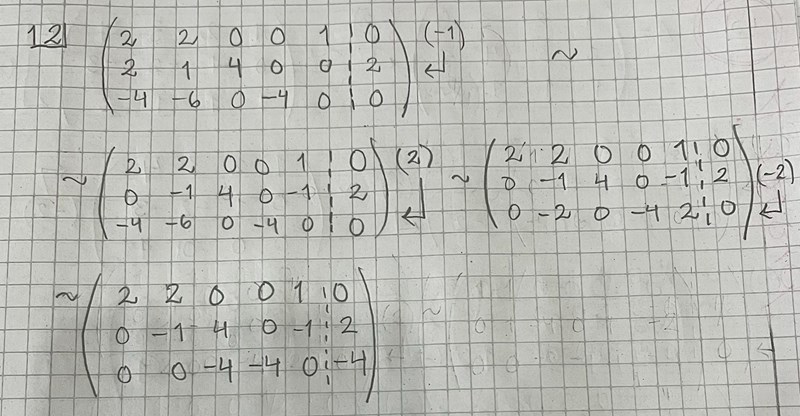 12 ( 2 2 0 0 1 ¦ 0 ) (-1)
( 2 1 4 0 0 ¦ 2 ) ↵ ~
( -4 -6 0 -4 0 ¦ 0 )
~ ( 2 2 0 0 1 ¦ 0 ) (2)
( 0 -1 4 0 -1 ¦ 2 )
( -4 -6 0 -4 0 ¦ 0 ) ↵
~ ( 2 2 0 0 1 ¦ 0 )
( 0 -1 4 0 -1 ¦ 2 ) (-2)
( 0 -2 0 -4 2 ¦ 0 ) ↵
~ ( 2 2 0 0 1 ¦ 0 )
( 0 -1 4 0 -1 ¦ 2 )
( 0 0 -4 -4 0 ¦ -4 )